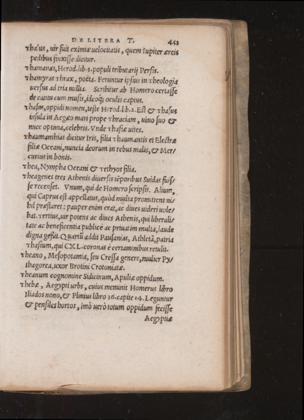 DE LITERA T. 442
Thasus, uir fuit eximiæ uelocitatis, quem Iupiter æreis
pedibus finxisse dicitur.
Thamanæi, Herod. lib. 3. populi tributarij Persis.
Thamyras Thrax, poëta. Feruntur ipsius in theologia
uersus ad tria millia. Scribitur ab Homero certasse
de cantu cum musis, ideoq; oculis captus.
Thasos, oppidi nomen, teste Herod. lib. 2. Est & Thasus
insula in Aegæo mari prope Thraciam, uino suo &
nuce optima, celebris. Vnde Thasiæ uites.
Thaumanthias dicitur Iris, filia Thaumantis ex Electra
filia Oceani, nuncia deorum in rebus malis, & Mer-
curius in bonis.
Thea, Nympha Oceani & Tethyos filia.
Theagenes tres Athenis diuersis temporibus Suidas fuis-
se recenset. Vnum, qui de Homero scripsit. Alium,
qui Caprus est appellatus, quòd multa promittens ni-
hil præstaret: pauper enim erat, ac diues uideri uole-
bat. Tertius, uir potens ac diues Athenis, qui liberali-
tate ac beneficentia publicè ac priuatim multa, laude
digna gessit. Quartũ addit Pausanias, Athletã, patria
Thasium, qui CXL. coronas è certaminibus retulit.
Theano, Mesopotamia, seu Cressa genere, mulier Py-
thagorea, uxor Brotini Crotoniatæ.
Theanum cognomine Sidicinum, Apuliæ oppidum.
Thebæ, Aegypti urbs, cuius meminit Homerus libro
Iliados nono, & Plinius libro 36. capite 14. Leguntur
& pensiles hortos, imò uerò totum oppidum fecisse
Aegyptiæ